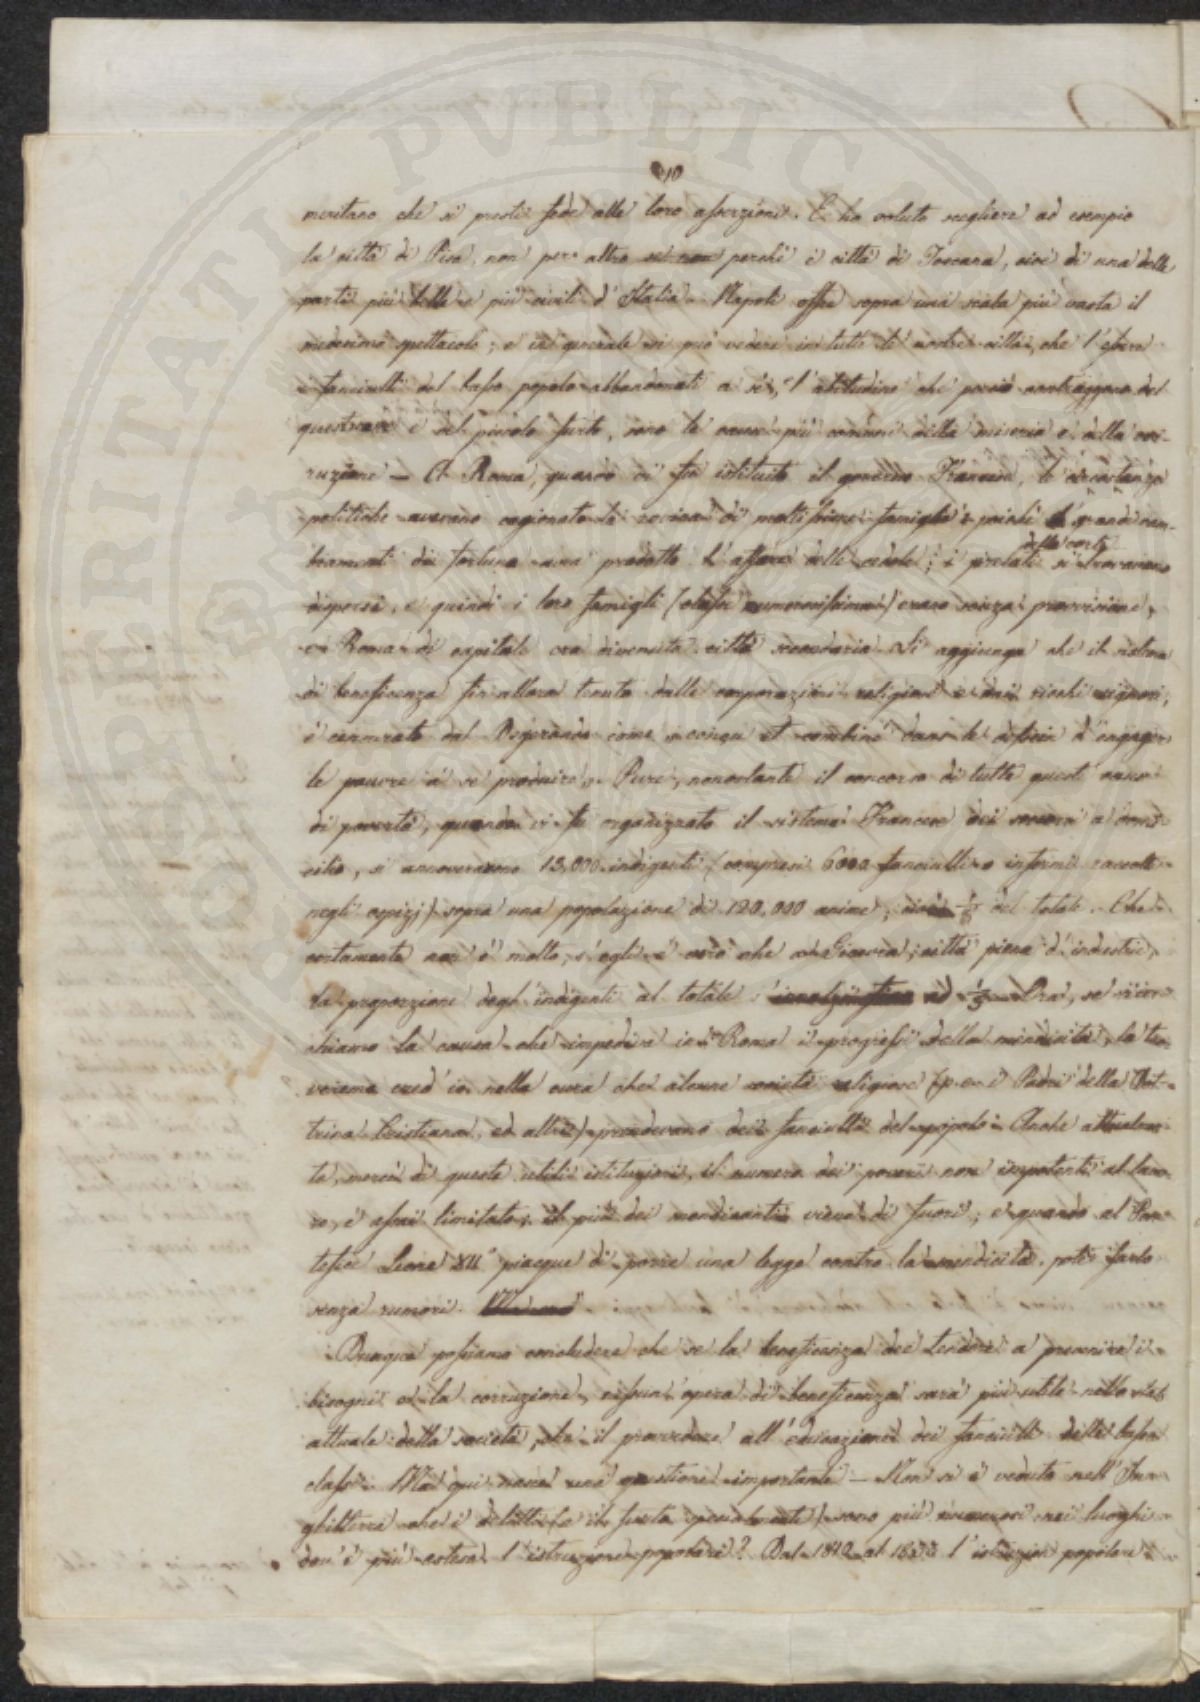 PROSPERITATI PVBLICAE
10
meritano che si presti fede alle loro asserzioni. E ho voluto scegliere ad esempio
la città di Pisa, non per altro se non perchè è città di Toscana, cioè di una delle
parti più belle e più civili d'Italia. Napoli offre sopra una scala più vasta il
medesimo spettacolo; e in generale si può vedere in tutte le nostre città, che l'essere
i fanciulli del basso popolo abbandonati a sè, l'abitudine che perciò contraggono del
questuare e del piccolo furto, sono le cause più comuni della miseria e della cor-
ruzione — A Roma, quando vi fu istituito il governo Francese, le circostanze
politiche avevano cagionato la rovina di moltissime famiglie; poichè grandi cam-
biamenti di fortuna avea prodotto l'affare delle cedole; i prelati della corte si trovavano
dispersi, e quindi i loro famigli (classe numerosissima) erano senza provvisione,
e Roma di capitale era divenuta città secondaria. Si aggiunga che il sistema
di beneficenza fin allora tenuto dalle corporazioni religiose e dai ricchi signori,
è censurato dal Degerando come conçu et combiné dans le dessein d'engager
le pauvre à se produire. Pure, nonostante il concorso di tutte queste cause
di povertà, quando vi fu organizzato il sistema Francese dei soccorsi a domi-
cilio, si annoverarono 15,000 indigenti (compresi 6000 fanciulli o infermi raccolti
negli ospizj) sopra una popolazione di 120,000 anime, cioè 1/8 del totale. Che
certamente non è molto, s'egli è vero che a Ginevra, città piena d'industrie,
la proporzione degli indigenti al totale ad 1/5. Ora, se ricer-
chiamo la causa che impediva in Roma i progressi della mendicità, la tro-
veremo cred'io nella cura che alcune società religiose (p. e. i Padri della Dot-
trina Cristiana, ed altri) prendevano dei fanciulli del popolo. Anche attualmen-
te, mercè di queste utili istituzioni, il numero dei poveri non impotenti al lavo-
ro, è assai limitato; il più dei mendicanti viene di fuori; e quando al Pon-
tefice Leone XII° piacque di porre una legge contro la mendicità, potè farlo
senza rumori.
Dunque possiamo concludere che se la beneficenza dee tendere a prevenire i
bisogni e la corruzione, nessun'opera di beneficenza sarà più utile nello stato
attuale della società, che il provvedere all'educazione dei fanciulli delle basse
classi. Ma qui nasce una questione importante — Non si è veduto nell'In-
ghilterra che i delitti (e il furto specialmente) sono più numerosi nei luoghi
dov'è più estesa l'istruzione popolare? Dal 1812 al l'istruzion popolare